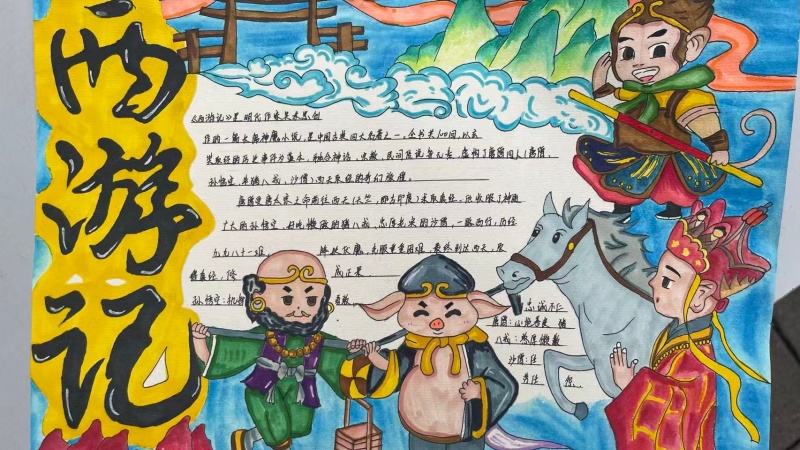 西游记
《西游记》是明代作家吴承恩创
作的一部长篇神魔小说,是中国古典四大名著之一,全书共100回,以玄
奘取经的历史事件为蓝本,融合神话、宗教、民间传说等元素,虚构了唐僧师徒四人(唐僧、
孙悟空、猪八戒、沙僧)西天取经的奇幻旅程。
唐僧受唐太宗之命前往西天(天竺,即古印度)求取真经,他收服了神通
广大的孙悟空、好吃懒做的猪八戒、忠厚老实的沙僧,一路西行,历经
九九八十一难 降妖伏魔,克服重重困难,最终到达西天,取
得真经,修 成正果
孙悟空:机智 勇敢、
忠诚不
唐僧:心地善良
八戒:憨厚懒散
沙僧:任
劳任怨